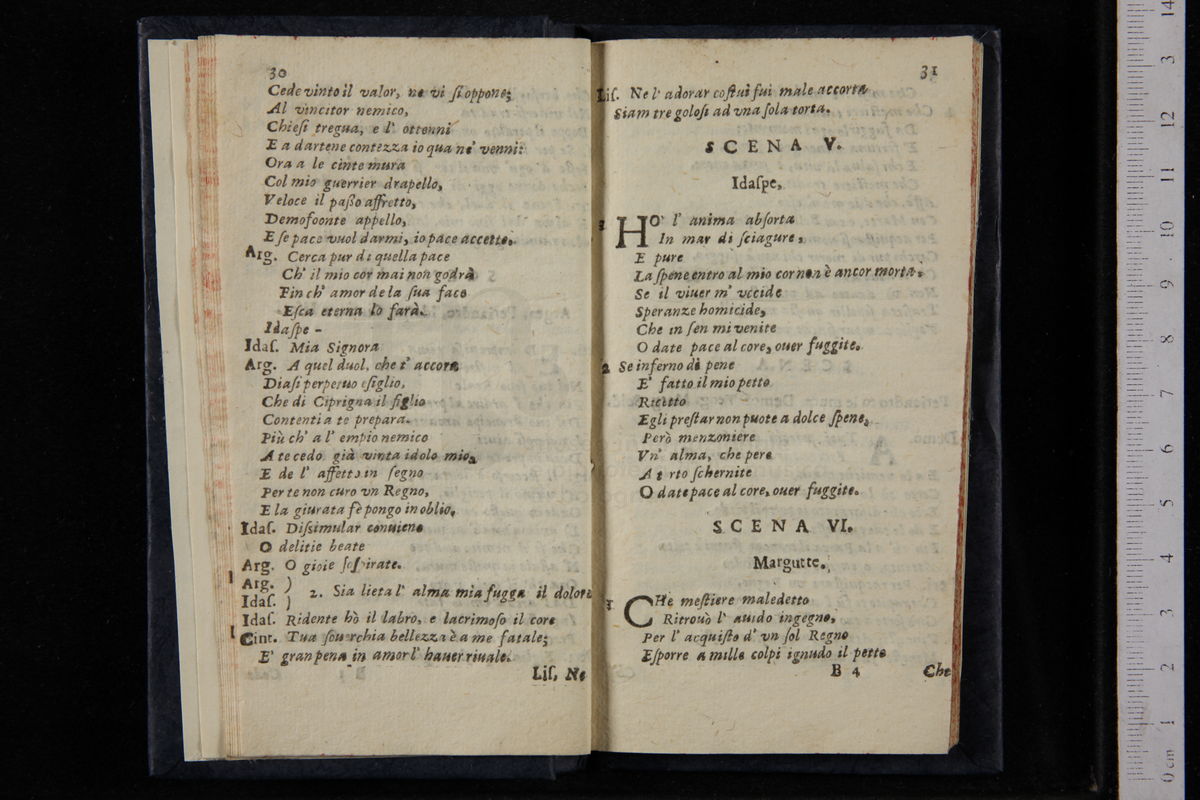 30
Cede vinto il valor, ne vi ſi oppone;
Al vincitor nemico,
Chieſi tregua, e l' ottenni
E a dartene contezza io qua ne' venni:
Ora a le cinte mura
Col mio guerrier drapello,
Veloce il paſſo affretto,
Demofoonte appello,
E ſe pace vuol darmi, io pace accetto.
Arg. Cerca pur di quella pace
Ch' il mio cor mai non godrà
Fin ch' amor de la ſua face
Eſca eterna lo farà.
Idaſpe -
Idaſ. Mia Signora
Arg. A quel duol, che t' accora
Diaſi perpetuo eſiglio,
Che di Ciprigna il figlio
Contenti a te prepara.
Più ch' a l' empio nemico
A te cedo già vinta idolo mio,
E de l' affetto in ſegno
Per te non curo vn Regno,
E la giurata fè pongo in oblio.
Idaſ. Diſsimular conuiene
O delitie beate
Arg. O gioie ſoſpirate.
Arg. )
Idaſ. ) 2. Sia lieta l' alma mia fugga il dolore
Idaſ. Ridente hò il labro, e lacrimoſo il core
Cint. Tua ſouerchia bellezza è a me fatale;
E' gran pena in amor l' hauer riuale.
Liſ. Ne
31
Liſ. Ne l' adorar coſtui fui male accorta
Siam tre goloſi ad vna ſola torta.
SCENA V.
Idaſpe,
1 HO' l' anima abſorta
In mar di ſciagure,
E pure
La ſpene entro al mio cor non è ancor morta,
Se il viuer m' vccide
Speranze homicide,
Che in ſen mi venite
O date pace al core, ouer fuggite.
2 Se inferno di pene
E' fatto il mio petto
Ricetto
Egli preſtar non puote a dolce ſpene,
Però menzoniere
Vn' alma, che pere
A t rto ſchernite
O date pace al core, ouer fuggite.
SCENA VI.
Margutte.
1 CHe meſtiere maledetto
Ritrouò l' auido ingegno,
Per l' acquiſto d' vn ſol Regno
Eſporre a mille colpi ignudo il petto
B 4 Che